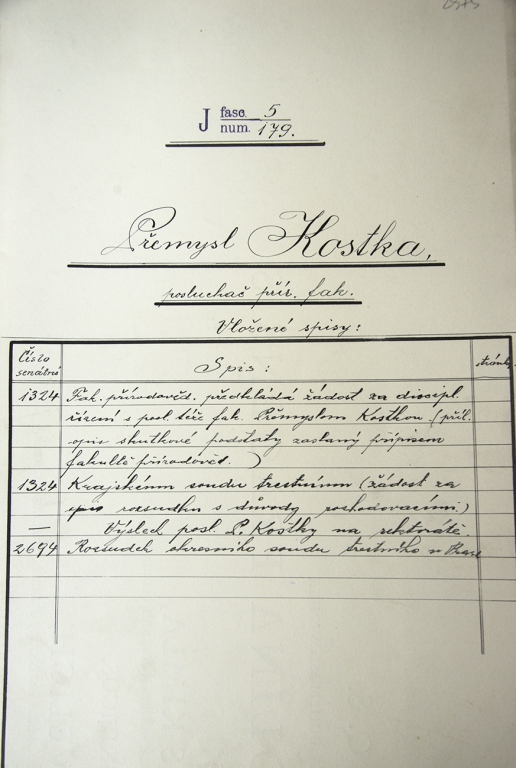 J fasc. 5
num. 179.
Přemysl Kostka,
posluchač přír. fak.
Vložené spisy:
Číslo senátní
Spis:
stránky
1324 Fak. přírodověd. předkládá žádost za discipl.
řízení s posl. téže fak. Přemyslem Kostkou (příl.
opis skutkové podstaty zaslaný přípisem
fakultě přírodověd.)
1324 Krajskému soudu trestnímu (žádost za
opis rozsudku s důvody rozhodovacími.)
— Výslech posl. P. Kostky na rektorátě.
2694 Rozsudek okresního soudu trestního v Praze